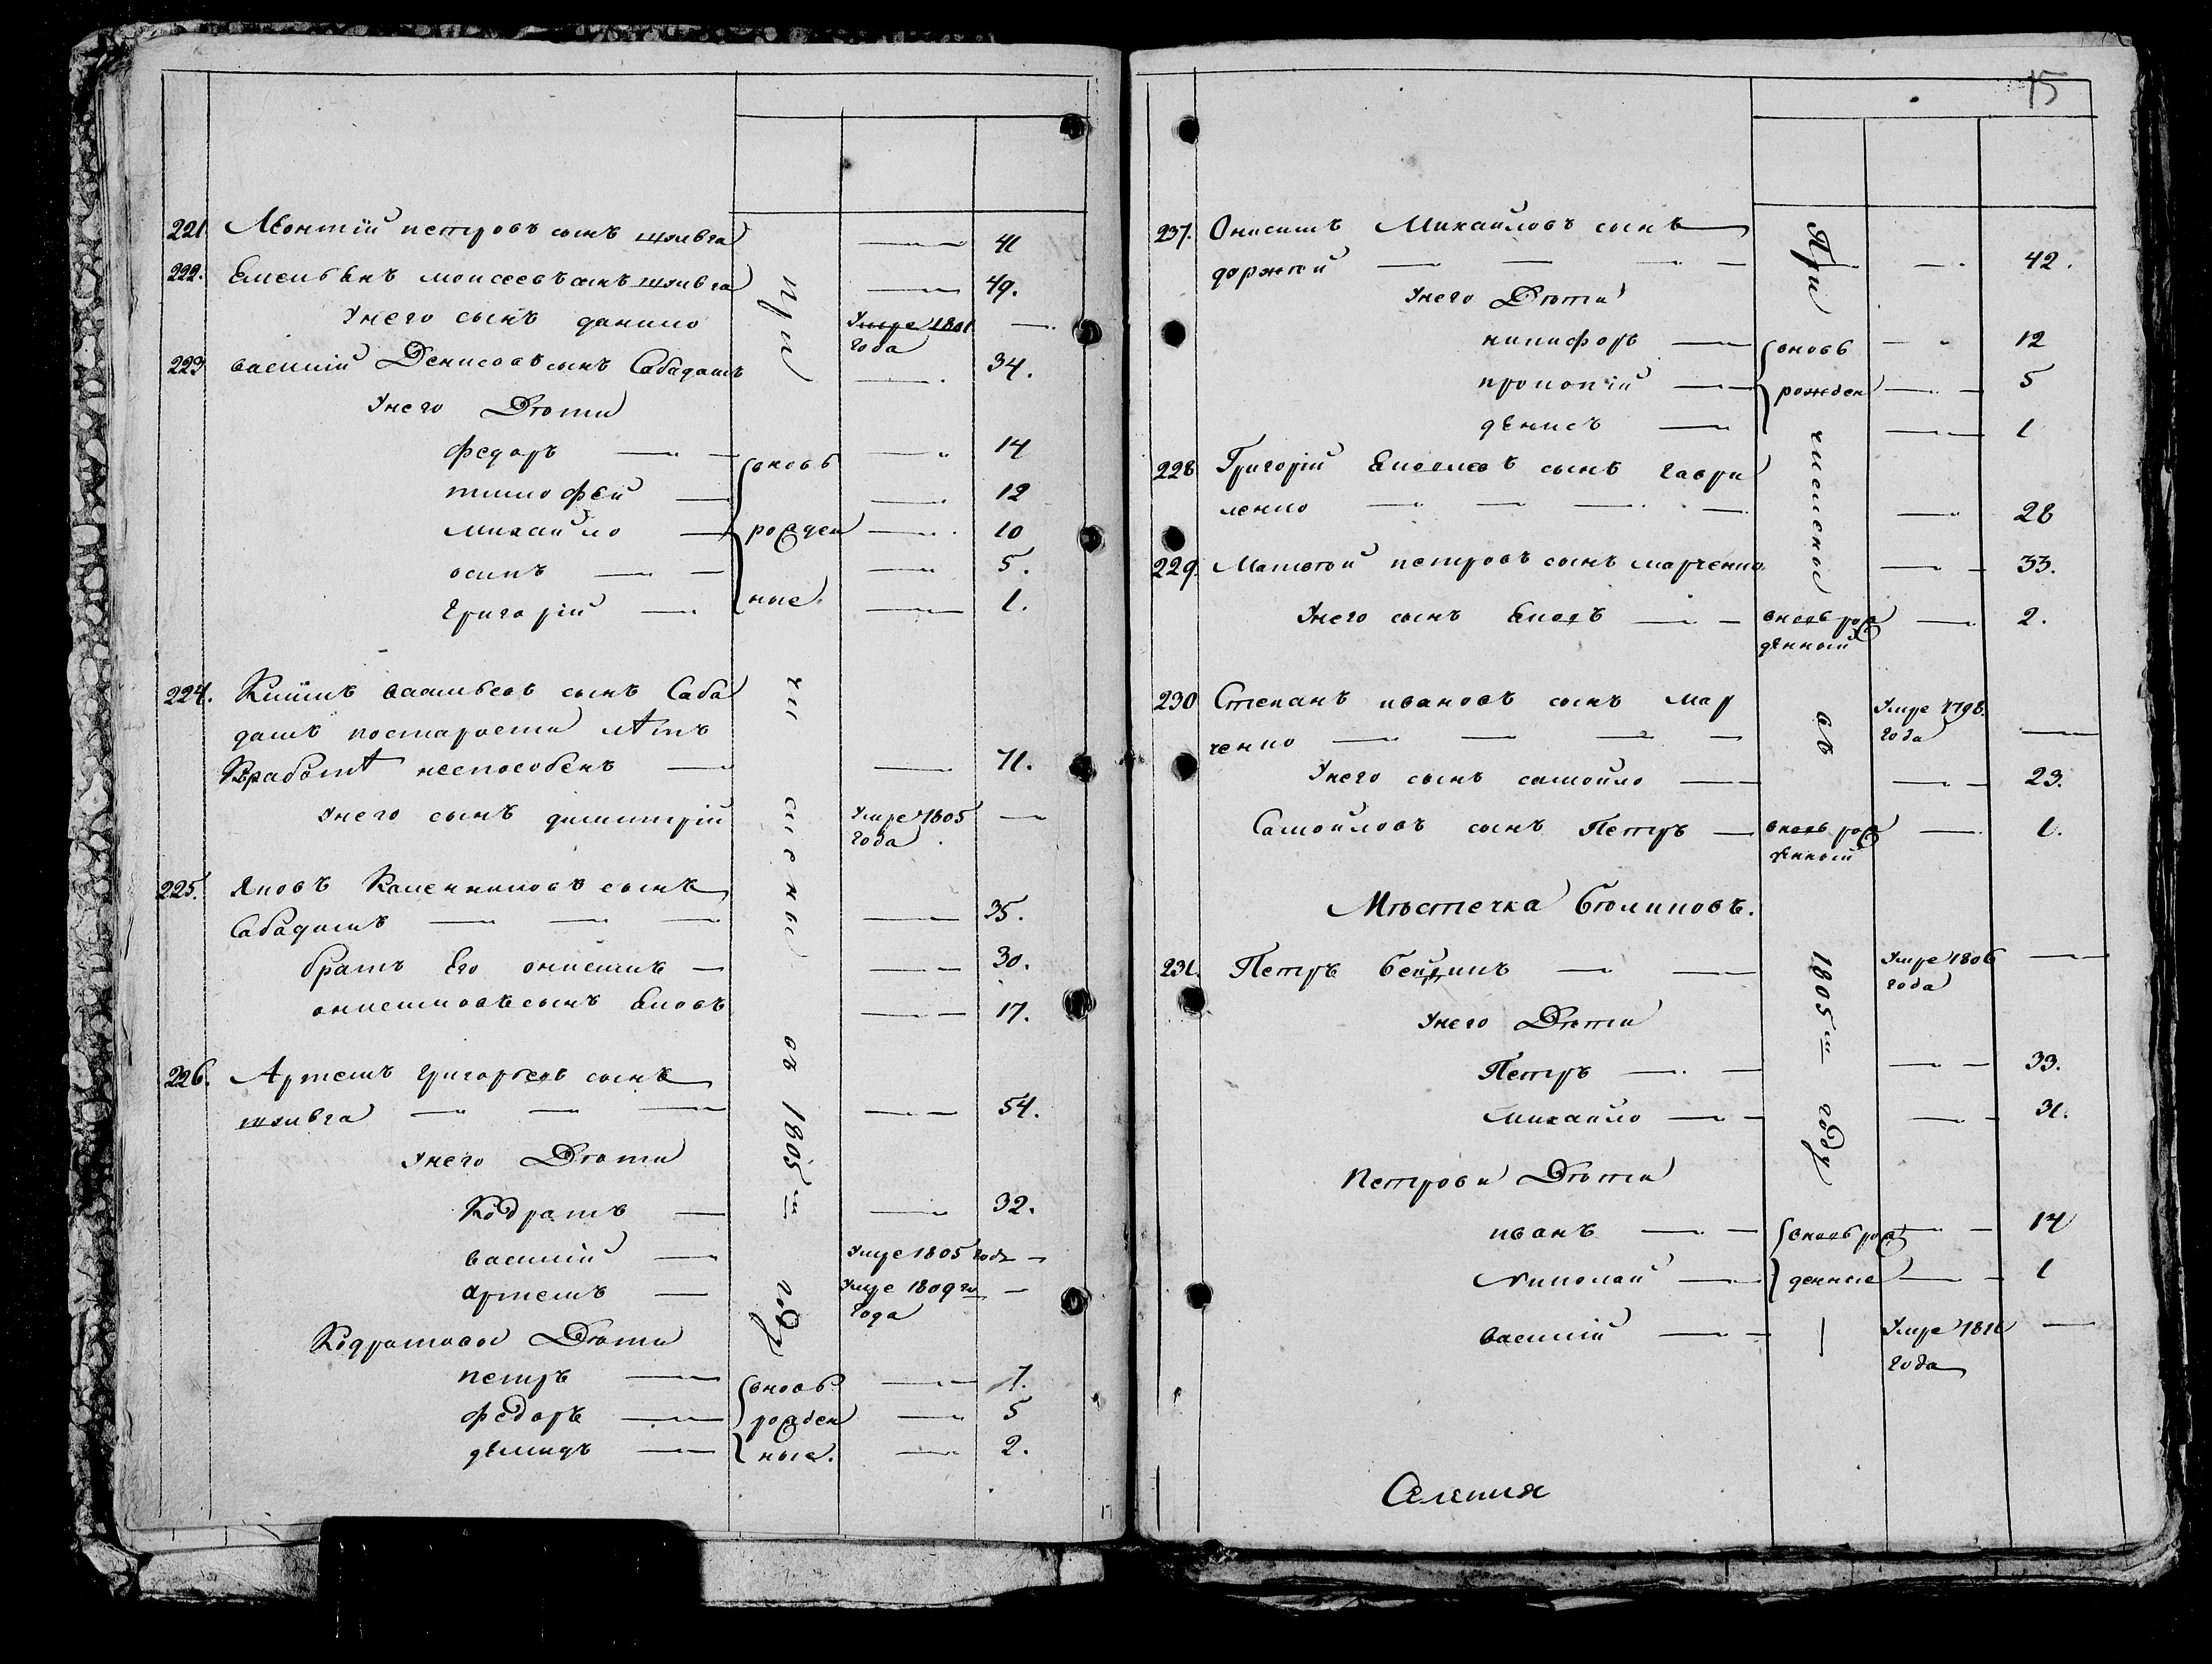 221. Леонтій петровъ сынъ — 41
222. Емельянъ моисеевъ сынъ — 49.
Унего сынъ данило Умре 1801 —
года
223 василій Денисовъ сынъ Сабадашъ — 34.
Унего Дѣти
федоръ — вновь — 14
тимофей — 12
михайло — рожден — 10
осипъ — 5.
григорій — ные. — 1.
224. васильевъ сынъ Саба
дашъ постарости лѣтъ
Кработѣ неспособенъ — 71.
Унего сынъ димитрій Умре 1805 —
года
225. Яковъ Калениковъ сынъ
Сабадашъ — 35.
братъ Его онисимъ — 30.
онисимовъ сынъ Яковъ — 17.
226. Артемъ григорьевъ сынъ
— 54.
Унего Дѣти
Кодратъ — 32.
василій — Умре 1805 года —
артемъ — Умре 1809го —
года
Кодратовы Дѣти
петръ — вновь — 7.
федоръ — рожден — 5
демидъ — ные. — 2.
При
численое
въ
1805м
году
15
237. Онисимъ Михайловъ сынъ
— 42.
Унего Дѣти
никифоръ — вновь — 12
прокопій — рожден — 5
денисъ — 1
228 Григорій сынъ гаври
ленко — 28
229. Матвей петровъ сынъ марченко — 33.
Унего сынъ Яковъ — вновь рож — 2.
денный
230 Степанъ ивановъ сынъ мар Умре 1798.
ченко — года —
Унего сынъ самойло — 23.
Самойловъ сынъ Петръ — вновь рож — 1.
денный
Мѣстечка Бѣликовъ.
231. Петръ — Умре 1806 —
года
Унего Дѣти
Петръ — 33.
Михайло — 31.
Петрови Дѣти
иванъ — вновь рож — 14
Николай — денные — 1
василій — Умре 1811 —
года
При
численое
въ
1805м
году
Селения